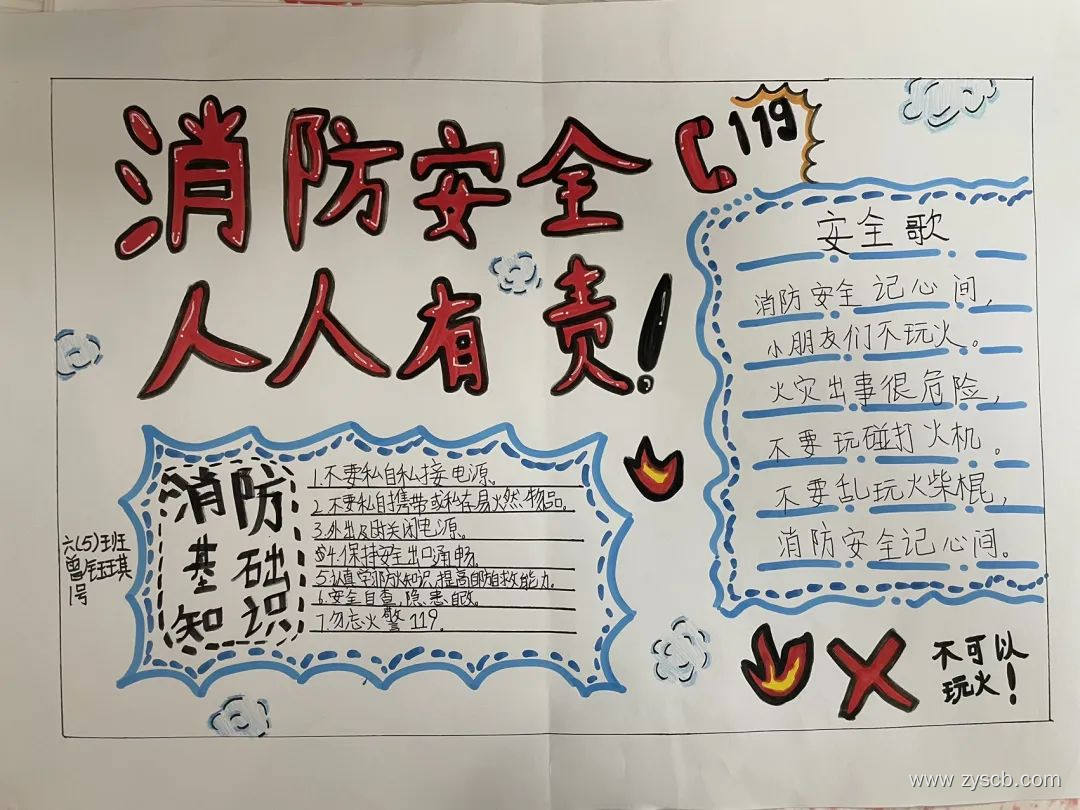 消防安全
人人有责!
119
安全歌
消防安全记心间,
小朋友们不玩火。
火灾出事很危险,
不要玩碰打火机。
不要乱玩火柴棍,
消防安全记心间。
消防
基础
知识
1.不要私自私接电源。
2.不要私自携带或私存易火然物品。
3.外出及时关闭电源。
4.保持安全出口通畅。
5.认真学消防知识,提高自防自救能力。
6.安全自查,隐患自改。
7.勿忘火警119.
六(5)班
曾钰琪
1号
不可以
玩火!
www.zyscb.com